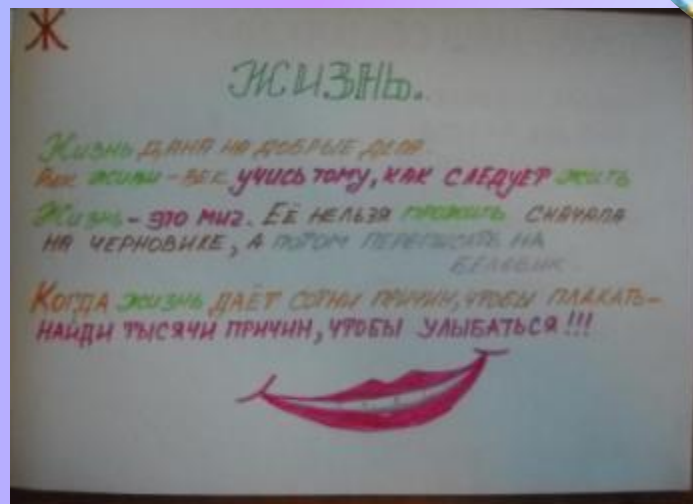 Ж
ЖИЗНЬ.
Жизнь дана на добрые дела.
Век живи – век учись тому, как следует жить
Жизнь – это миг. Её нельзя прожить сначала
на черновике, а потом переписать на
беловик.
Когда жизнь даёт сотни причин, чтобы плакать –
найди тысячи причин, чтобы улыбаться!!!